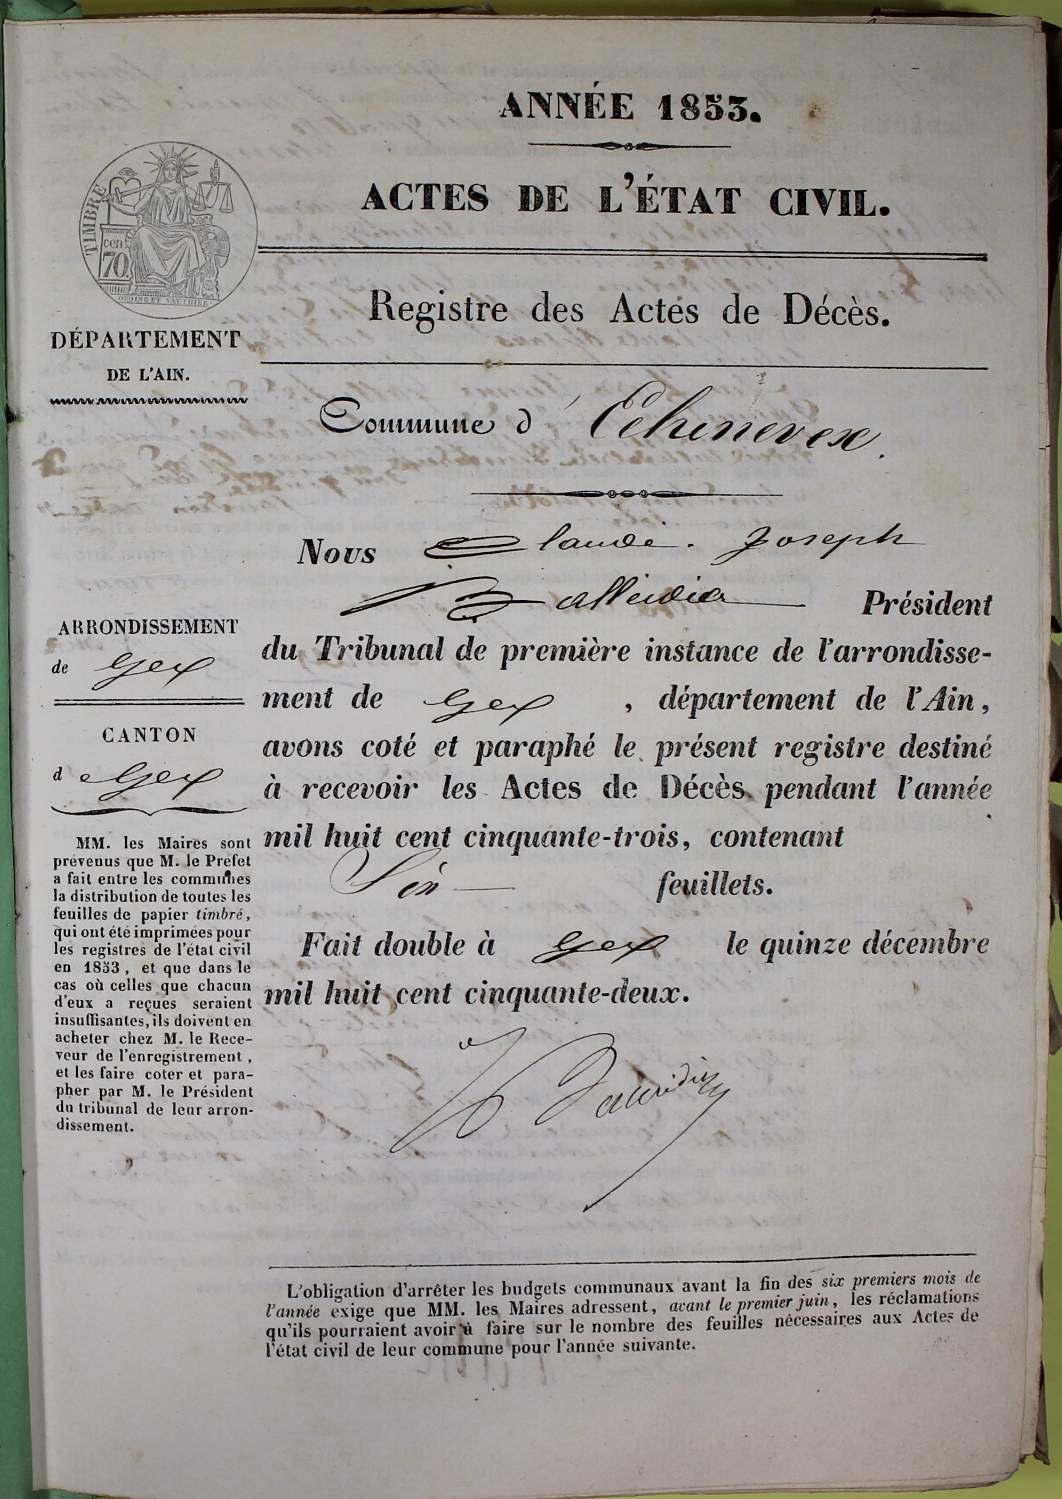 ANNÉE 1853.
ACTES DE L'ÉTAT CIVIL.
TIMBRE
cen
70
Registre des Actes de Décès.
DÉPARTEMENT
DE L'AIN.
Commune d' Echenevex.
Nous Claude Joseph
Président
ARRONDISSEMENT
de Gex
CANTON
d Gex
du Tribunal de première instance de l'arrondisse-
ment de Gex , département de l'Ain,
avons coté et paraphé le présent registre destiné
à recevoir les Actes de Décès pendant l'année
mil huit cent cinquante-trois, contenant
Six feuillets.
Fait double à Gex le quinze décembre
mil huit cent cinquante-deux.
MM. les Maires sont
prévenus que M. le Préfet
a fait entre les communes
la distribution de toutes les
feuilles de papier timbré,
qui ont été imprimées pour
les registres de l'état civil
en 1853, et que dans le
cas où celles que chacun
d'eux a reçues seraient
insuffisantes, ils doivent en
acheter chez M. le Rece-
veur de l'enregistrement,
et les faire coter et para-
pher par M. le Président
du tribunal de leur arron-
dissement.
L'obligation d'arrêter les budgets communaux avant la fin des six premiers mois de
l'année exige que MM. les Maires adressent, avant le premier juin, les réclamations
qu'ils pourraient avoir à faire sur le nombre des feuilles nécessaires aux Actes de
l'état civil de leur commune pour l'année suivante.